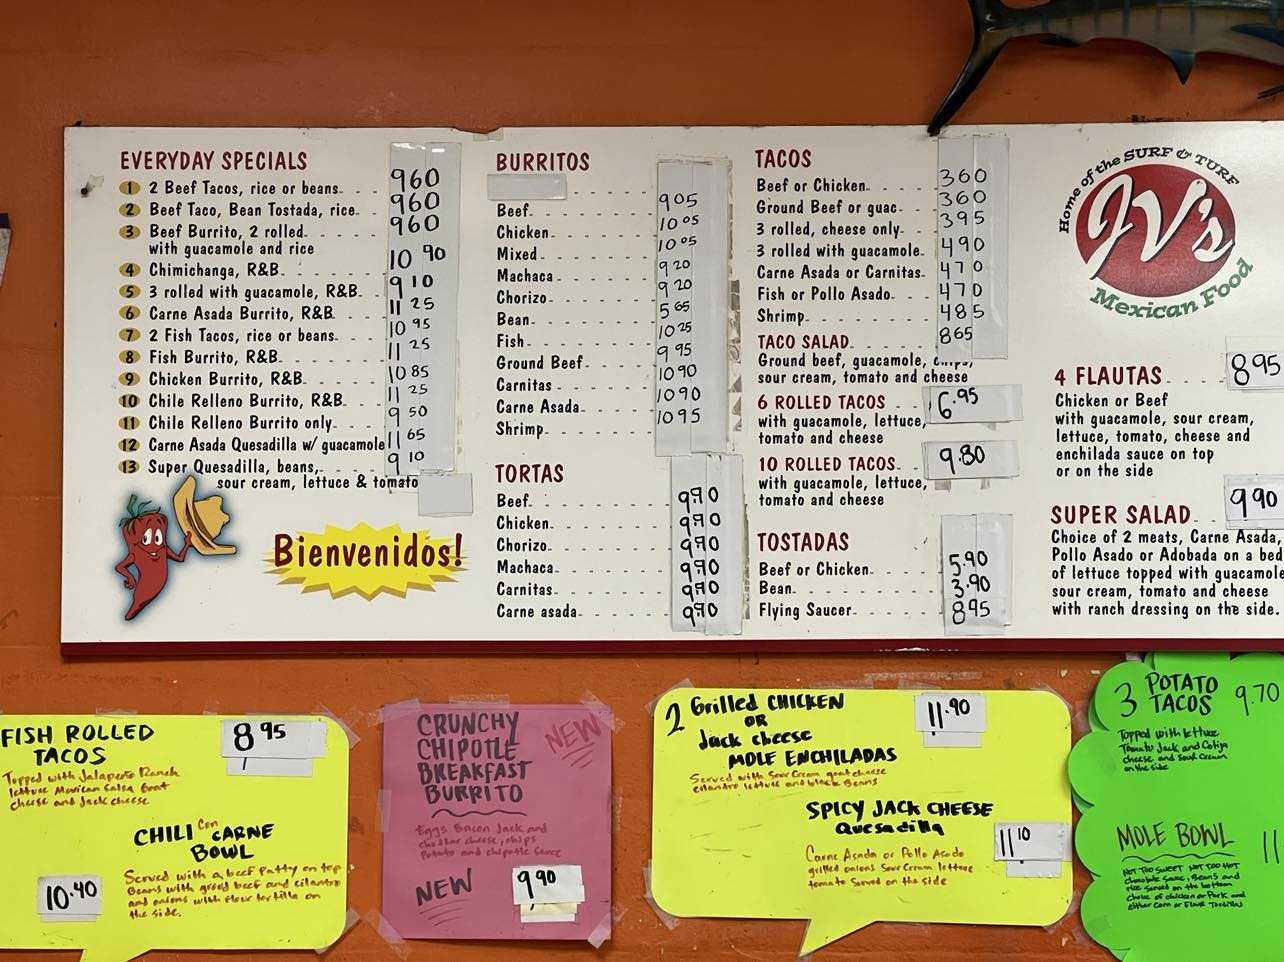 EVERYDAY SPECIALS
1 2 Beef Tacos, rice or beans 960
2 Beef Taco, Bean Tostada, rice 960
3 Beef Burrito, 2 rolled 960
with guacamole and rice
4 Chimichanga, R&B 10 90
5 3 rolled with guacamole, R&B 9 10
6 Carne Asada Burrito, R&B 11 25
7 2 Fish Tacos, rice or beans 10 95
8 Fish Burrito, R&B 11 25
9 Chicken Burrito, R&B 10 85
10 Chile Relleno Burrito, R&B 11 25
11 Chile Relleno Burrito only 9 50
12 Carne Asada Quesadilla w/ guacamole 11 65
13 Super Quesadilla, beans, 9 10
sour cream, lettuce & tomato
Bienvenidos!
BURRITOS
Beef 9 05
Chicken 10 05
Mixed 10 05
Machaca 9 20
Chorizo 9 20
Bean 5 65
Fish 10 25
Ground Beef 9 95
Carnitas 10 90
Carne Asada 10 90
Shrimp 10 95
TORTAS
Beef 990
Chicken 990
Chorizo 990
Machaca 990
Carnitas 990
Carne asada 990
TACOS
Beef or Chicken 360
Ground Beef or guac 360
3 rolled, cheese only 395
3 rolled with guacamole 490
Carne Asada or Carnitas 470
Fish or Pollo Asado 470
Shrimp 485
TACO SALAD 865
Ground beef, guacamole, chips,
sour cream, tomato and cheese
6 ROLLED TACOS 6.95
with guacamole, lettuce,
tomato and cheese
10 ROLLED TACOS 9.80
with guacamole, lettuce,
tomato and cheese
TOSTADAS
Beef or Chicken 5.90
Bean 3.90
Flying Saucer 895
Home of the SURF & TURF
JV's
Mexican Food
4 FLAUTAS 8 95
Chicken or Beef
with guacamole, sour cream,
lettuce, tomato, cheese and
enchilada sauce on top
or on the side
SUPER SALAD 9 90
Choice of 2 meats, Carne Asada,
Pollo Asado or Adobada on a bed
of lettuce topped with guacamole
sour cream, tomato and cheese
with ranch dressing on the side.
FISH ROLLED 8 95
TACOS
Topped with Jalapeño Ranch
lettuce Mexican Salsa Goat
cheese and Jack cheese
CHILI Con CARNE
BOWL
10.40
Served with a beef Patty on top
Beans with ground beef and cilantro
and onions with flour tortilla on
the side.
CRUNCHY
CHIPOTLE
BREAKFAST
BURRITO
NEW
Eggs Bacon Jack and
cheddar cheese, chips
Potato and chipotle sauce
NEW
9 90
2 Grilled CHICKEN 11.90
OR
Jack cheese
MOLE ENCHILADAS
Served with Sour Cream goat cheese
cilantro lettuce and black Beans
SPICY JACK CHEESE
Quesadilla
11 10
Carne Asada or Pollo Asado
grilled onions Sour Cream lettuce
tomato Served on the side
3 POTATO TACOS 9.70
Topped with lettuce
Tomato Jack and Cotija
cheese and sour Cream
on the side
MOLE BOWL 11
NOT TOO SWEET NOT TOO HOT
chocolate sauce, Beans and
rice served on the bottom
choice of chicken or Pork and
either Corn or Flour Tortillas